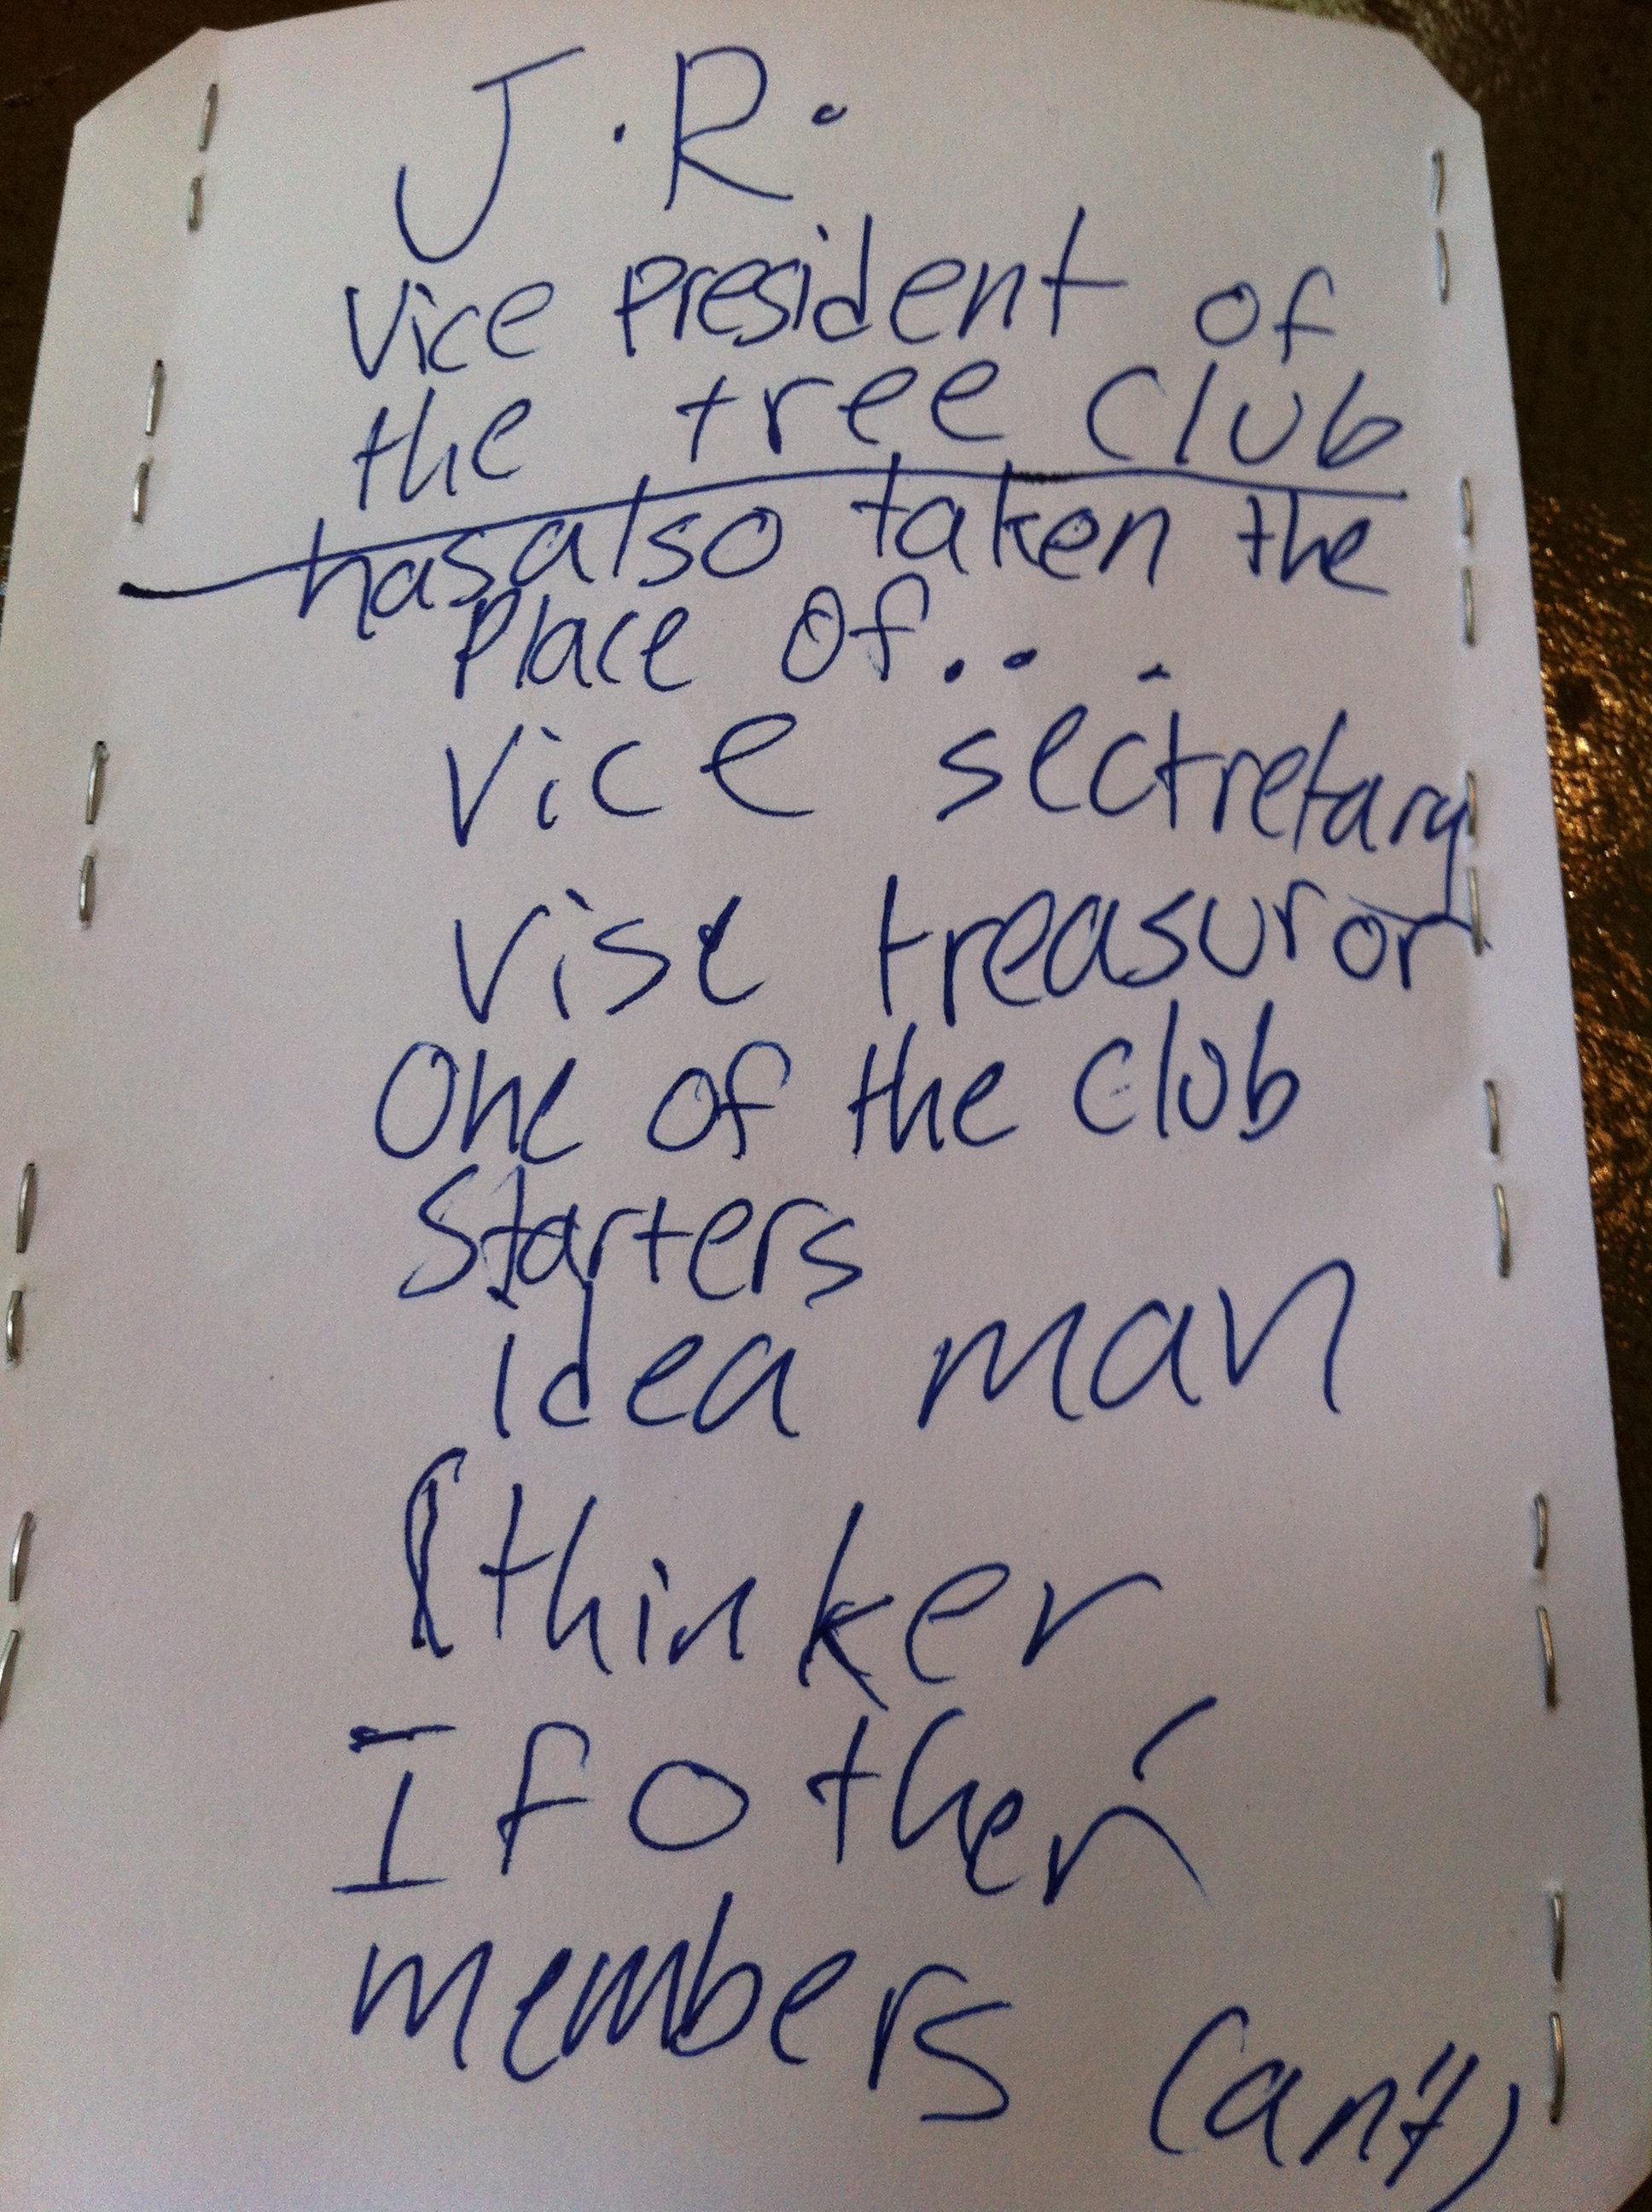 J.R.
Vice President of
the tree club
has also taken the
Place Of...
Vice sectretary
Vise treasuror
One of the club
Starters
idea man
thinker
If other
members (an't)